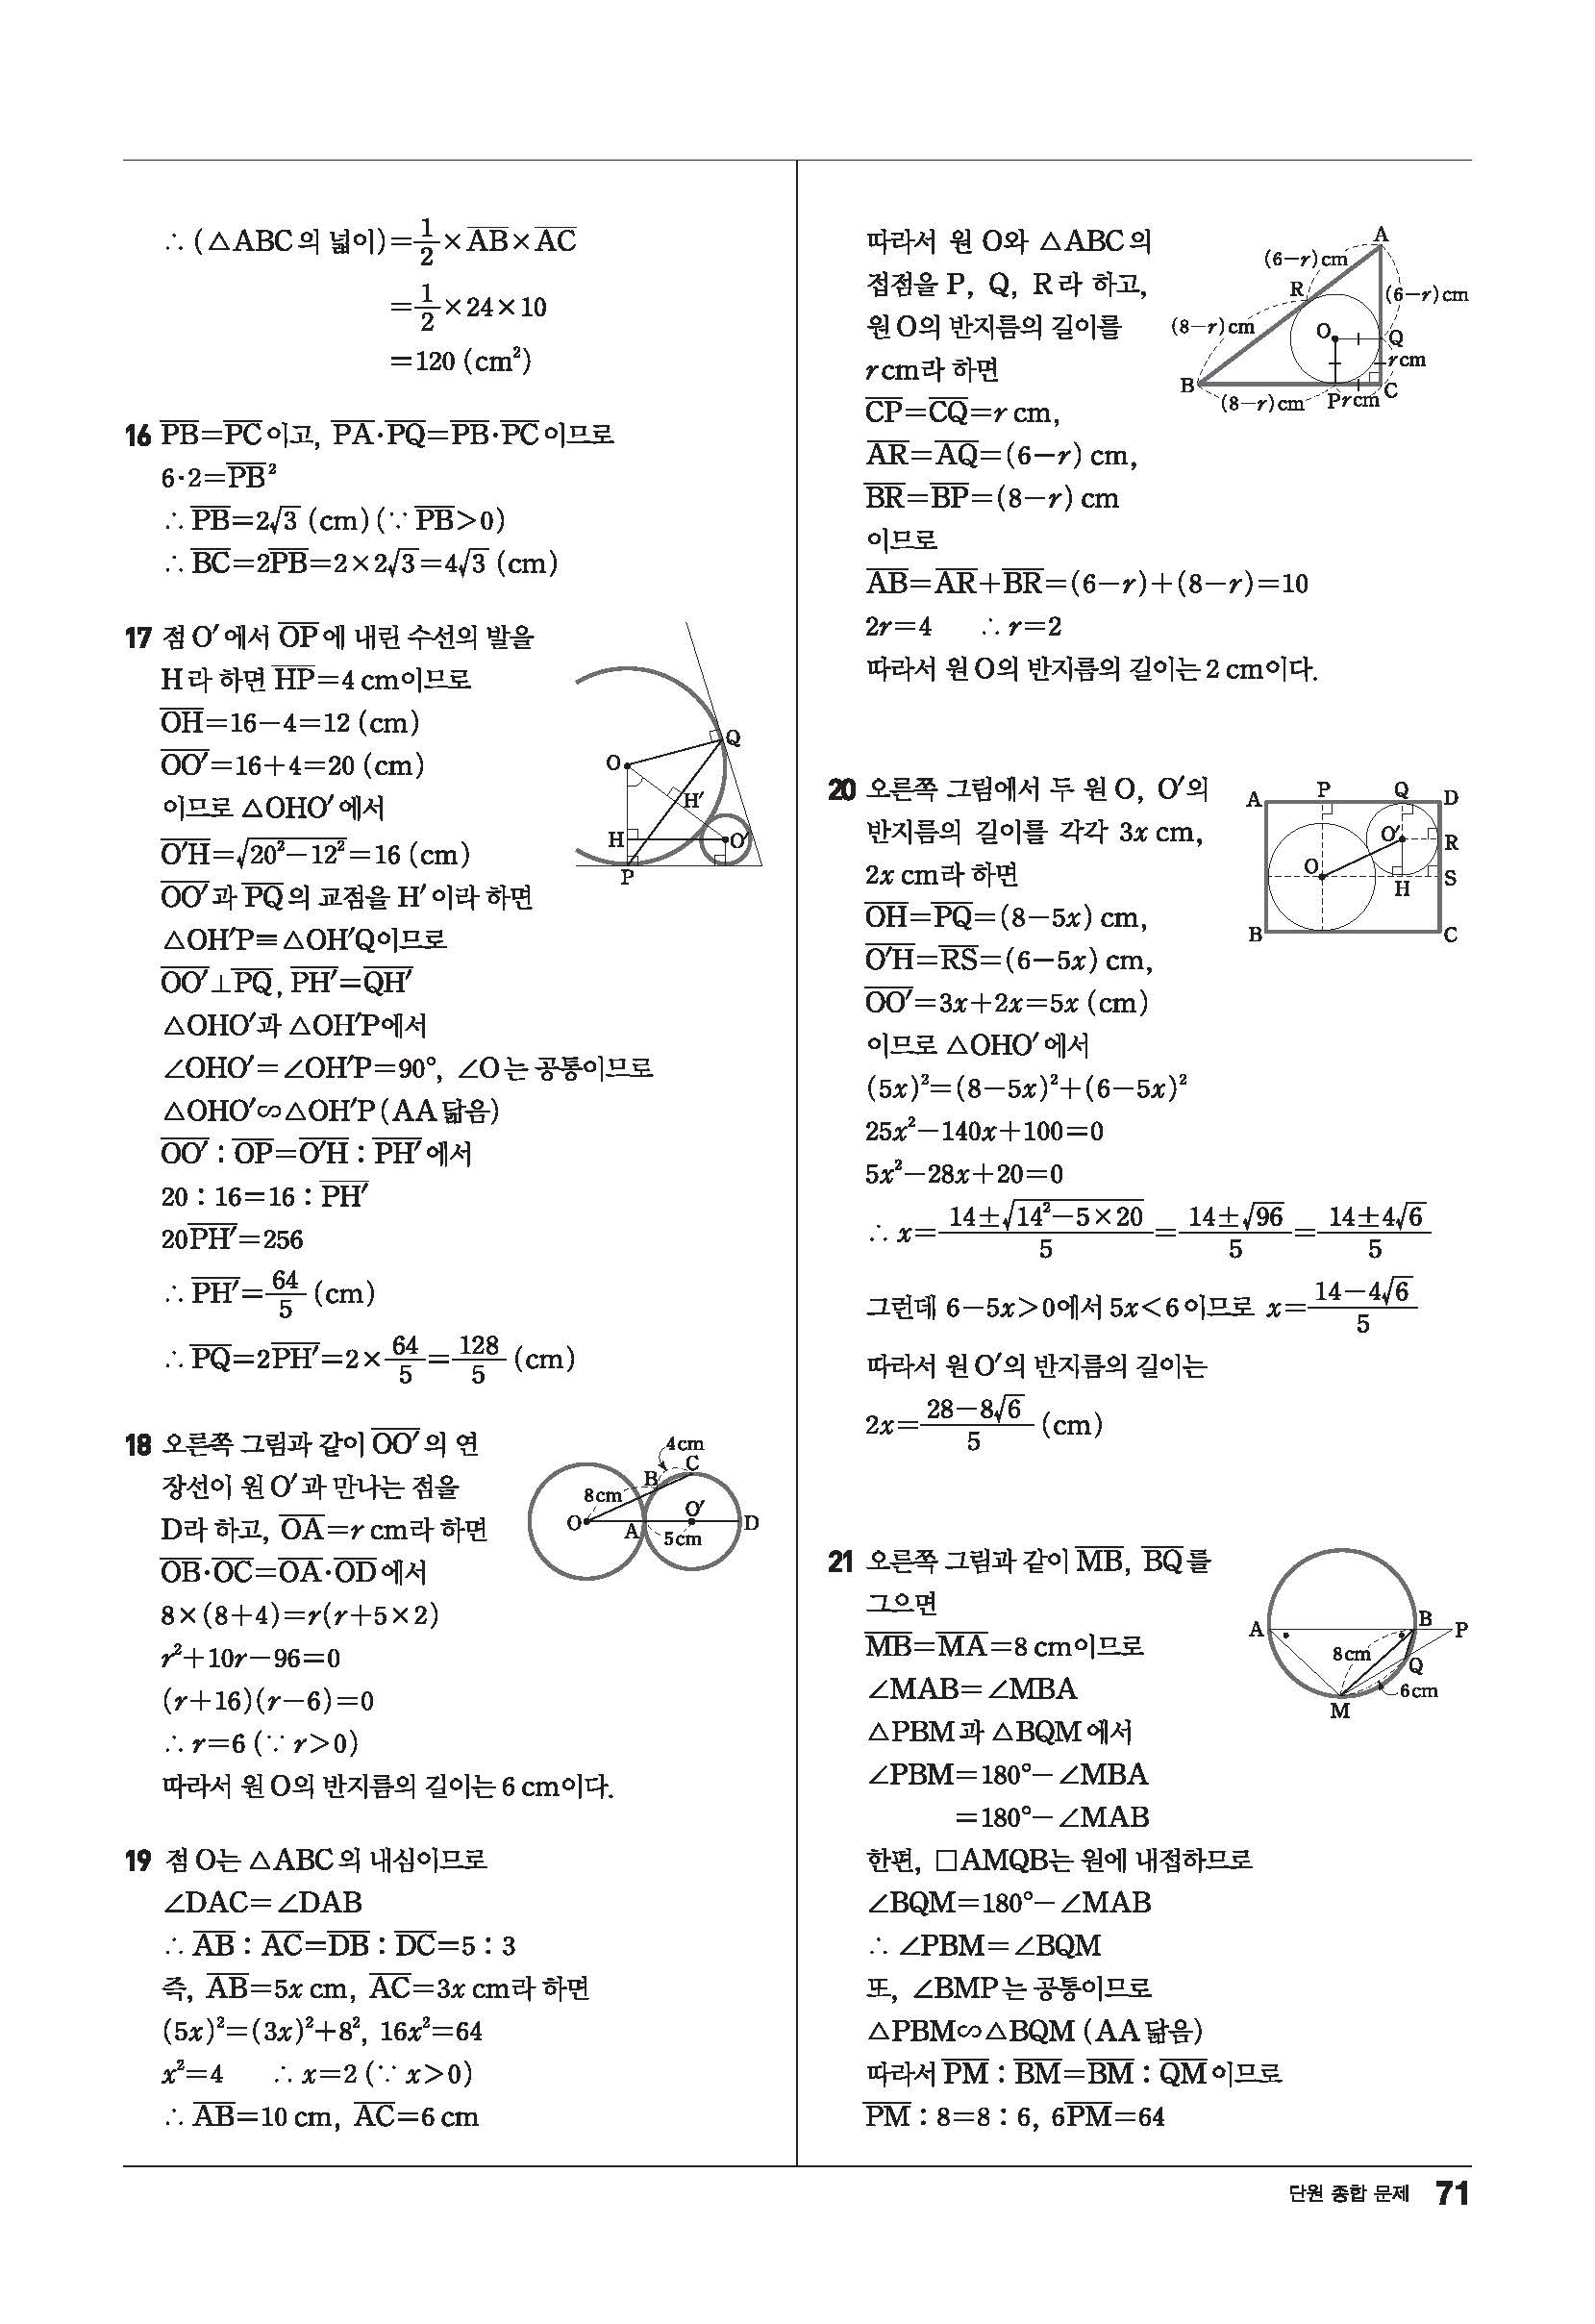 ∴ (△ABC의 넓이)=1/2×AB×AC
=1/2×24×10
=120 (cm²)
16 PB=PC이고, PA·PQ=PB·PC이므로
6·2=PB²
∴ PB=2√3 (cm) (∵ PB>0)
∴ BC=2PB=2×2√3=4√3 (cm)
17 점 O′에서 OP에 내린 수선의 발을
H라 하면 HP=4 cm이므로
OH=16−4=12 (cm)
OO′=16+4=20 (cm)
이므로 △OHO′에서
O′H=√(20²−12²)=16 (cm)
OO′과 PQ의 교점을 H′이라 하면
△OH′P≡△OH′Q이므로
OO′⊥PQ, PH′=QH′
△OHO′과 △OH′P에서
∠OHO′=∠OH′P=90°, ∠O는 공통이므로
△OHO′∽△OH′P (AA 닮음)
OO′ : OP=O′H : PH′에서
20 : 16=16 : PH′
20PH′=256
∴ PH′=64/5 (cm)
∴ PQ=2PH′=2×64/5=128/5 (cm)
O
Q
H′
H
O′
P
18 오른쪽 그림과 같이 OO′의 연
장선이 원 O′과 만나는 점을
D라 하고, OA=r cm라 하면
OB·OC=OA·OD에서
8×(8+4)=r(r+5×2)
r²+10r−96=0
(r+16)(r−6)=0
∴ r=6 (∵ r>0)
따라서 원 O의 반지름의 길이는 6 cm이다.
4cm
B
C
8cm
O
A
O′
D
5cm
19 점 O는 △ABC의 내심이므로
∠DAC=∠DAB
∴ AB : AC=DB : DC=5 : 3
즉, AB=5x cm, AC=3x cm라 하면
(5x)²=(3x)²+8², 16x²=64
x²=4 ∴ x=2 (∵ x>0)
∴ AB=10 cm, AC=6 cm
따라서 원 O와 △ABC의
접점을 P, Q, R라 하고,
원 O의 반지름의 길이를
r cm라 하면
CP=CQ=r cm,
AR=AQ=(6−r) cm,
BR=BP=(8−r) cm
이므로
AB=AR+BR=(6−r)+(8−r)=10
2r=4 ∴ r=2
따라서 원 O의 반지름의 길이는 2 cm이다.
A
(6−r)cm
R
(6−r)cm
(8−r)cm
O
Q
rcm
B
(8−r)cm
P
rcm
C
20 오른쪽 그림에서 두 원 O, O′의
반지름의 길이를 각각 3x cm,
2x cm라 하면
OH=PQ=(8−5x) cm,
O′H=RS=(6−5x) cm,
OO′=3x+2x=5x (cm)
이므로 △OHO′에서
(5x)²=(8−5x)²+(6−5x)²
25x²−140x+100=0
5x²−28x+20=0
∴ x=(14±√(14²−5×20))/5=(14±√96)/5=(14±4√6)/5
그런데 6−5x>0에서 5x<6이므로 x=(14−4√6)/5
따라서 원 O′의 반지름의 길이는
2x=(28−8√6)/5 (cm)
A
P
Q
D
O′
R
O
H
S
B
C
21 오른쪽 그림과 같이 MB, BQ를
그으면
MB=MA=8 cm이므로
∠MAB=∠MBA
△PBM과 △BQM에서
∠PBM=180°−∠MBA
=180°−∠MAB
한편, □AMQB는 원에 내접하므로
∠BQM=180°−∠MAB
∴ ∠PBM=∠BQM
또, ∠BMP는 공통이므로
△PBM∽△BQM (AA 닮음)
따라서 PM : BM=BM : QM이므로
PM : 8=8 : 6, 6PM=64
A
B
P
8cm
Q
6cm
M
단원 종합 문제 71